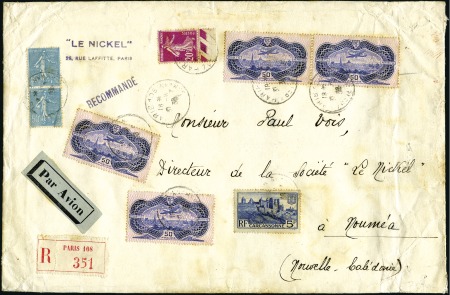 "LE NICKEL"
26, RUE LAFFITTE, PARIS
RECOMMANDÉ
20c
50
50
Monsieur Paul Vois,
50
Directeur de la Société "Le Nickel"
Par Avion
50
RF CARCASSONNE 5F
à Nouméa
(Nouvelle Calédonie)
R
PARIS 108
351